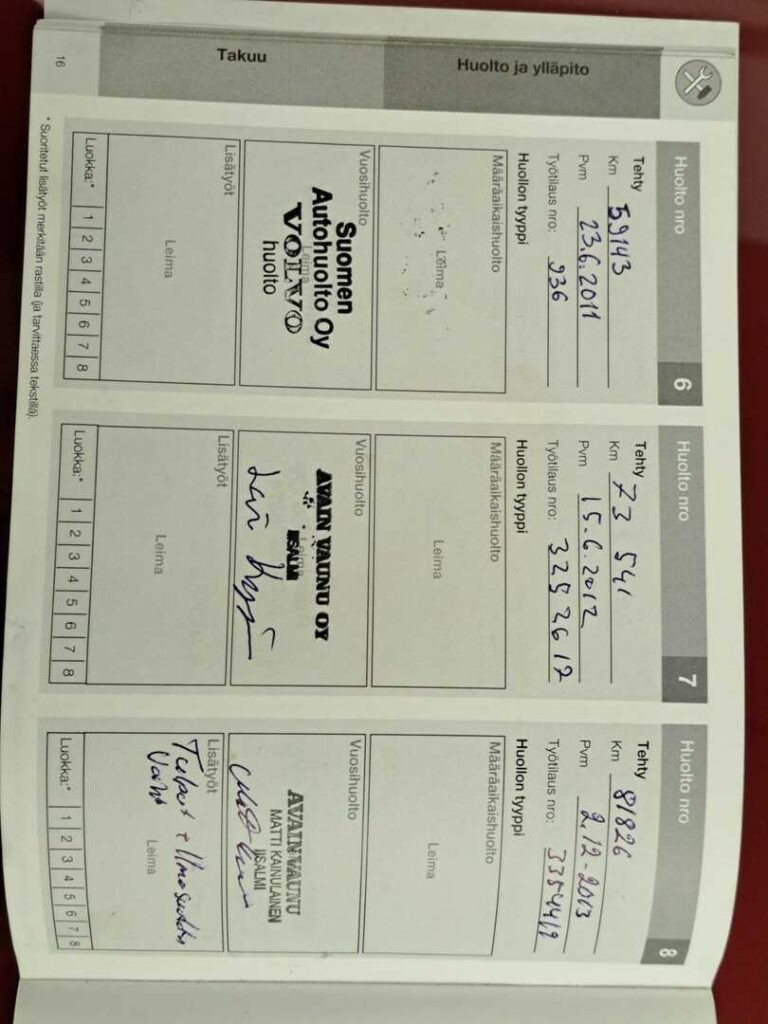 Takuu
Huolto ja ylläpito
Huolto nro 6
Tehty
Km 59143
Pvm 23.6.2011
Työtilaus nro: 936
Huollon tyyppi
Määräaikaishuolto
Leima
Vuosihuolto
Leima
Suomen
Autohuolto Oy
VOLVO
huolto
Lisätyöt
Leima
Luokka:* 1 2 3 4 5 6 7 8
Huolto nro 7
Tehty
Km 73 541
Pvm 15.6.2012
Työtilaus nro: 3252612
Huollon tyyppi
Määräaikaishuolto
Leima
Vuosihuolto
Leima
AVAIN VAUNU OY
IISALMI
Lisätyöt
Leima
Luokka:* 1 2 3 4 5 6 7 8
Huolto nro 8
Tehty
Km 81826
Pvm 2.12-2013
Työtilaus nro:
Huollon tyyppi
Määräaikaishuolto
Leima
Vuosihuolto
AVAINVAUNU
MATTI KAINULAINEN
IISALMI
Lisätyöt
Leima
Luokka:* 1 2 3 4 5 6 7 8
* Suoritetut lisätyöt merkitään rastilla (ja tarvittaessa tekstillä).
16